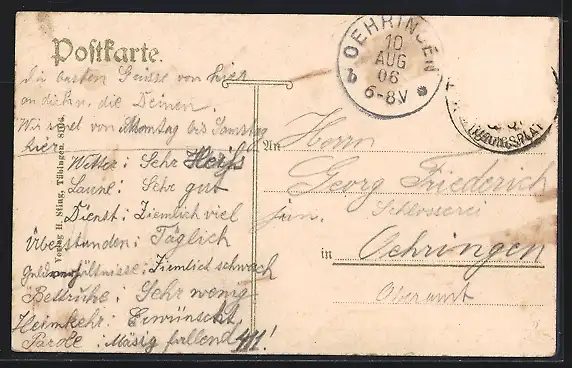 Postkarte.
Die besten Grüsse von hier
an dich u. die Deinen.
Wir sind von Montag bis Samstag
hier.
Wetter: Sehr Heiss
Laune: Sehr gut
Dienst: Ziemlich viel
Überstunden: Täglich
Geldverhältnisse: Ziemlich schwach
Bettruhe: Sehr wenig
Heimkehr: Erwünscht
Parole: Mäsig fallend 411!
Verlag H. Sting, Tübingen.
OEHRINGEN
10
AUG
06
6-8V
b
An
Herrn
Georg Friederich
jun. Schlosserei
in Oehringen
Oberamt